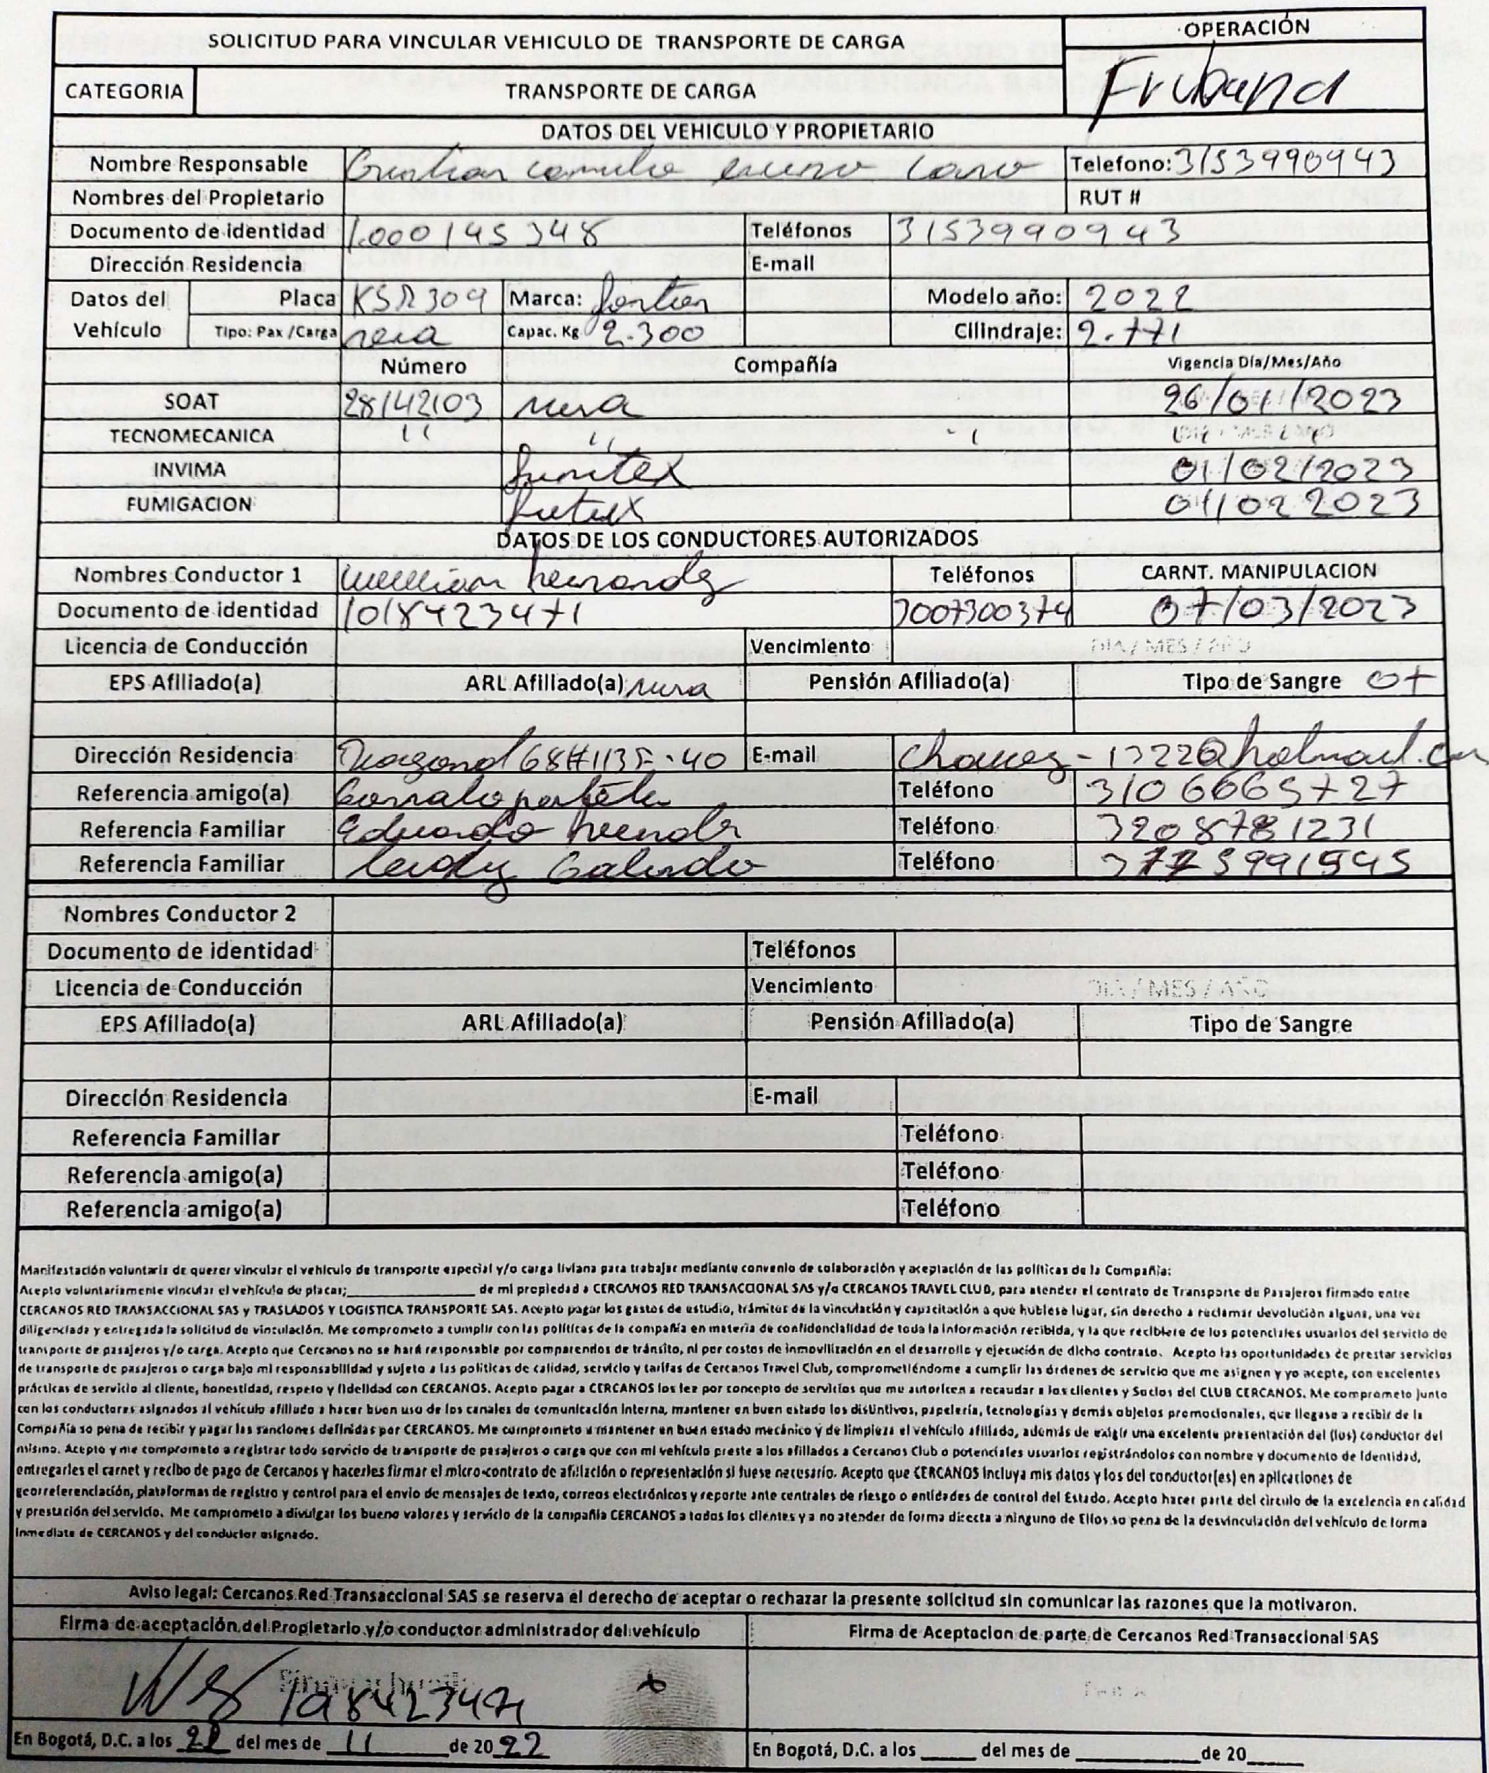 SOLICITUD PARA VINCULAR VEHICULO DE TRANSPORTE DE CARGA
OPERACIÓN
CATEGORIA TRANSPORTE DE CARGA
Frubana
DATOS DEL VEHICULO Y PROPIETARIO
Nombre Responsable Cristian camilo Telefono: 3153990943
Nombres del Propietario RUT #
Documento de identidad 1.000145348 Teléfonos 3153990943
Dirección Residencia E-mail
Datos del Vehículo
Placa KSR309 Marca: Modelo año: 2022
Tipo: Pax /Carga Capac. Kg 2.300 Cilindraje: 2.771
Número Compañía Vigencia Día/Mes/Año
SOAT 28142103 26/01/2023
TECNOMECANICA
INVIMA 01/02/2023
FUMIGACION 01/02 2023
DATOS DE LOS CONDUCTORES AUTORIZADOS
Nombres Conductor 1 Teléfonos CARNT. MANIPULACION
Documento de identidad 1018423471 3007300374 07/03/2023
Licencia de Conducción Vencimiento DIA / MES / AÑO
EPS Afiliado(a) ARL Afiliado(a) Pensión Afiliado(a) Tipo de Sangre O+
Dirección Residencia E-mail
Referencia amigo(a) Teléfono 3106665727
Referencia Familiar Eduardo Teléfono 3208781231
Referencia Familiar Leidy Galindo Teléfono
Nombres Conductor 2
Documento de identidad Teléfonos
Licencia de Conducción Vencimiento DIA / MES / AÑO
EPS Afiliado(a) ARL Afiliado(a) Pensión Afiliado(a) Tipo de Sangre
Dirección Residencia E-mail
Referencia Familiar Teléfono
Referencia amigo(a) Teléfono
Referencia amigo(a) Teléfono
Manifestación voluntaria de querer vincular el vehículo de transporte especial y/o carga liviana para trabajar mediante convenio de colaboración y aceptación de las políticas de la Compañía:
Acepto voluntariamente vincular el vehículo de placas;____________ de mi propiedad a CERCANOS RED TRANSACCIONAL SAS y/o CERCANOS TRAVEL CLUB, para atender el contrato de Transporte de Pasajeros firmado entre
CERCANOS RED TRANSACCIONAL SAS y TRASLADOS Y LOGISTICA TRANSPORTE SAS. Acepto pagar los gastos de estudio, trámites de la vinculación y capacitación a que hubiese lugar, sin derecho a reclamar devolución alguna, una vez
diligenciada y entregada la solicitud de vinculación. Me comprometo a cumplir con las políticas de la compañía en materia de confidencialidad de toda la información recibida, y la que recibiere de los potenciales usuarios del servicio de
transporte de pasajeros y/o carga. Acepto que Cercanos no se hará responsable por comparendos de tránsito, ni por costos de inmovilización en el desarrollo y ejecución de dicho contrato. Acepto las oportunidades de prestar servicios
de transporte de pasajeros o carga bajo mi responsabilidad y sujeto a las políticas de calidad, servicio y tarifas de Cercanos Travel Club, comprometiéndome a cumplir las órdenes de servicio que me asignen y yo acepte, con excelentes
prácticas de servicio al cliente, honestidad, respeto y fidelidad con CERCANOS. Acepto pagar a CERCANOS los fee por concepto de servicios que me autoricen a recaudar a los clientes y Socios del CLUB CERCANOS. Me comprometo junto
con los conductores asignados al vehículo afiliado a hacer buen uso de los canales de comunicación interna, mantener en buen estado los distintivos, papelería, tecnologías y demás objetos promocionales, que llegase a recibir de la
Compañía so pena de recibir y pagar las sanciones definidas por CERCANOS. Me comprometo a mantener en buen estado mecánico y de limpieza el vehículo afiliado, además de exigir una excelente presentación del (los) conductor del
mismo. Acepto y me comprometo a registrar todo servicio de transporte de pasajeros o carga que con mi vehículo preste a los afiliados a Cercanos Club o potenciales usuarios registrándolos con nombre y documento de identidad,
entregarles el carnet y recibo de pago de Cercanos y hacerles firmar el micro-contrato de afiliación o representación si fuese necesario. Acepto que CERCANOS incluya mis datos y los del conductor(es) en aplicaciones de
georreferenciación, plataformas de registro y control para el envio de mensajes de texto, correos electrónicos y reporte ante centrales de riesgo o entidades de control del Estado. Acepto hacer parte del circulo de la excelencia en calidad
y prestación del servicio. Me comprometo a divulgar los bueno valores y servicio de la compañía CERCANOS a todos los clientes y a no atender de forma directa a ninguno de Ellos so pena de la desvinculación del vehículo de forma
inmediata de CERCANOS y del conductor asignado.
Aviso legal: Cercanos Red Transaccional SAS se reserva el derecho de aceptar o rechazar la presente solicitud sin comunicar las razones que la motivaron.
Firma de aceptación del Propietario y/o conductor administrador del vehículo Firma de Aceptacion de parte de Cercanos Red Transaccional SAS
En Bogotá, D.C. a los 22 del mes de 11 de 2022 En Bogotá, D.C. a los _____ del mes de __________ de 20_____